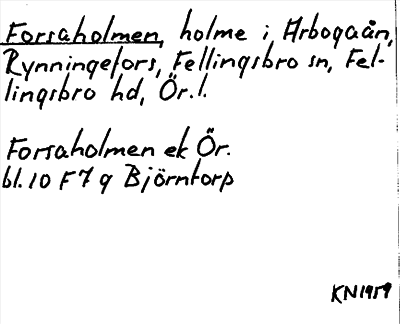 Forsaholmen, holme i Arbogaån,
Rynningefors, Fellingsbro sn, Fel-
lingsbro hd, Ör.l.
Forsaholmen ek Ör.
bl. 10 F 7 g Björntorp
KN 1959